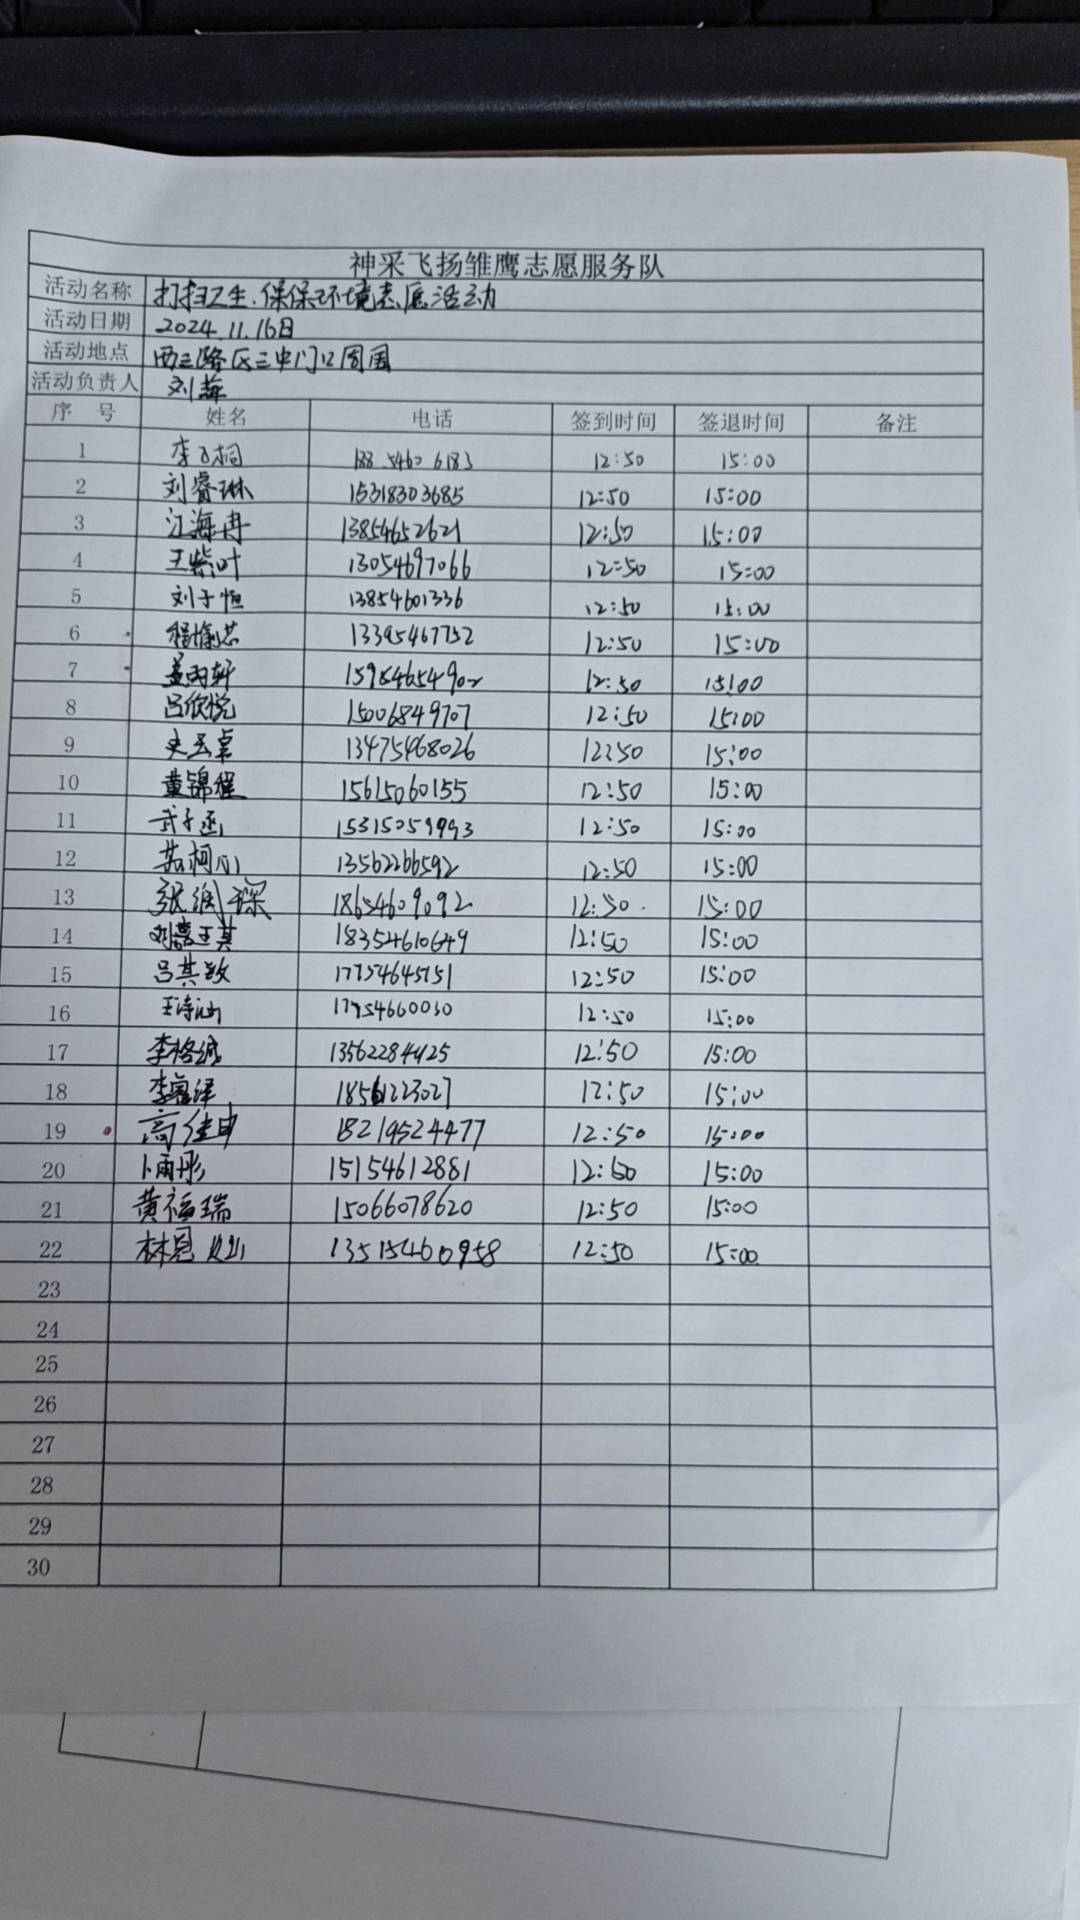 神采飞扬雏鹰志愿服务队
活动名称 打扫卫生.保保环境志愿活动
活动日期 2024.11.16日
活动地点 西三路区三中门口周围
活动负责人 刘萍
序号 姓名 电话 签到时间 签退时间 备注
1 12:50 15:00
2 刘睿琳 15318303685 12:50 15:00
3 江海冉 13854652621 12:50 15:00
4 王紫叶 13054697066 12:50 15:00
5 刘子恒 13854601336 12:50 15:00
6 13395467752 12:50 15:00
7 孟雨轩 15954654902 12:50 15:00
8 吕欣悦 15006849707 12:50 15:00
9 13475468026 12:50 15:00
10 黄锦程 15615060155 12:50 15:00
11 武子函 15315059993 12:50 15:00
12 13562266592 12:50 15:00
13 张润琛 18654609092 12:50 15:00
14 18354610649 12:50 15:00
15 吕其致 12:50 15:00
16 王诗涵 17754660030 12:50 15:00
17 13562284425 12:50 15:00
18 李睿泽 18561223027 12:50 15:00
19 高佳申 18219524477 12:50 15:00
20 卜雨彤 15154612881 12:50 15:00
21 黄福瑞 15066078620 12:50 15:00
22 135154600958 12:50 15:00
23
24
25
26
27
28
29
30